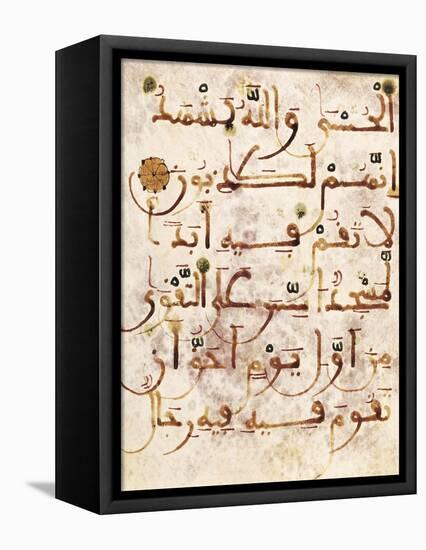 الحسنى والله يشهد
إنهم لكاذبون
لا تقم فيه أبدا
لمسجد أسس على التقوى
من أول يوم أحق أن
تقوم فيه فيه رجال